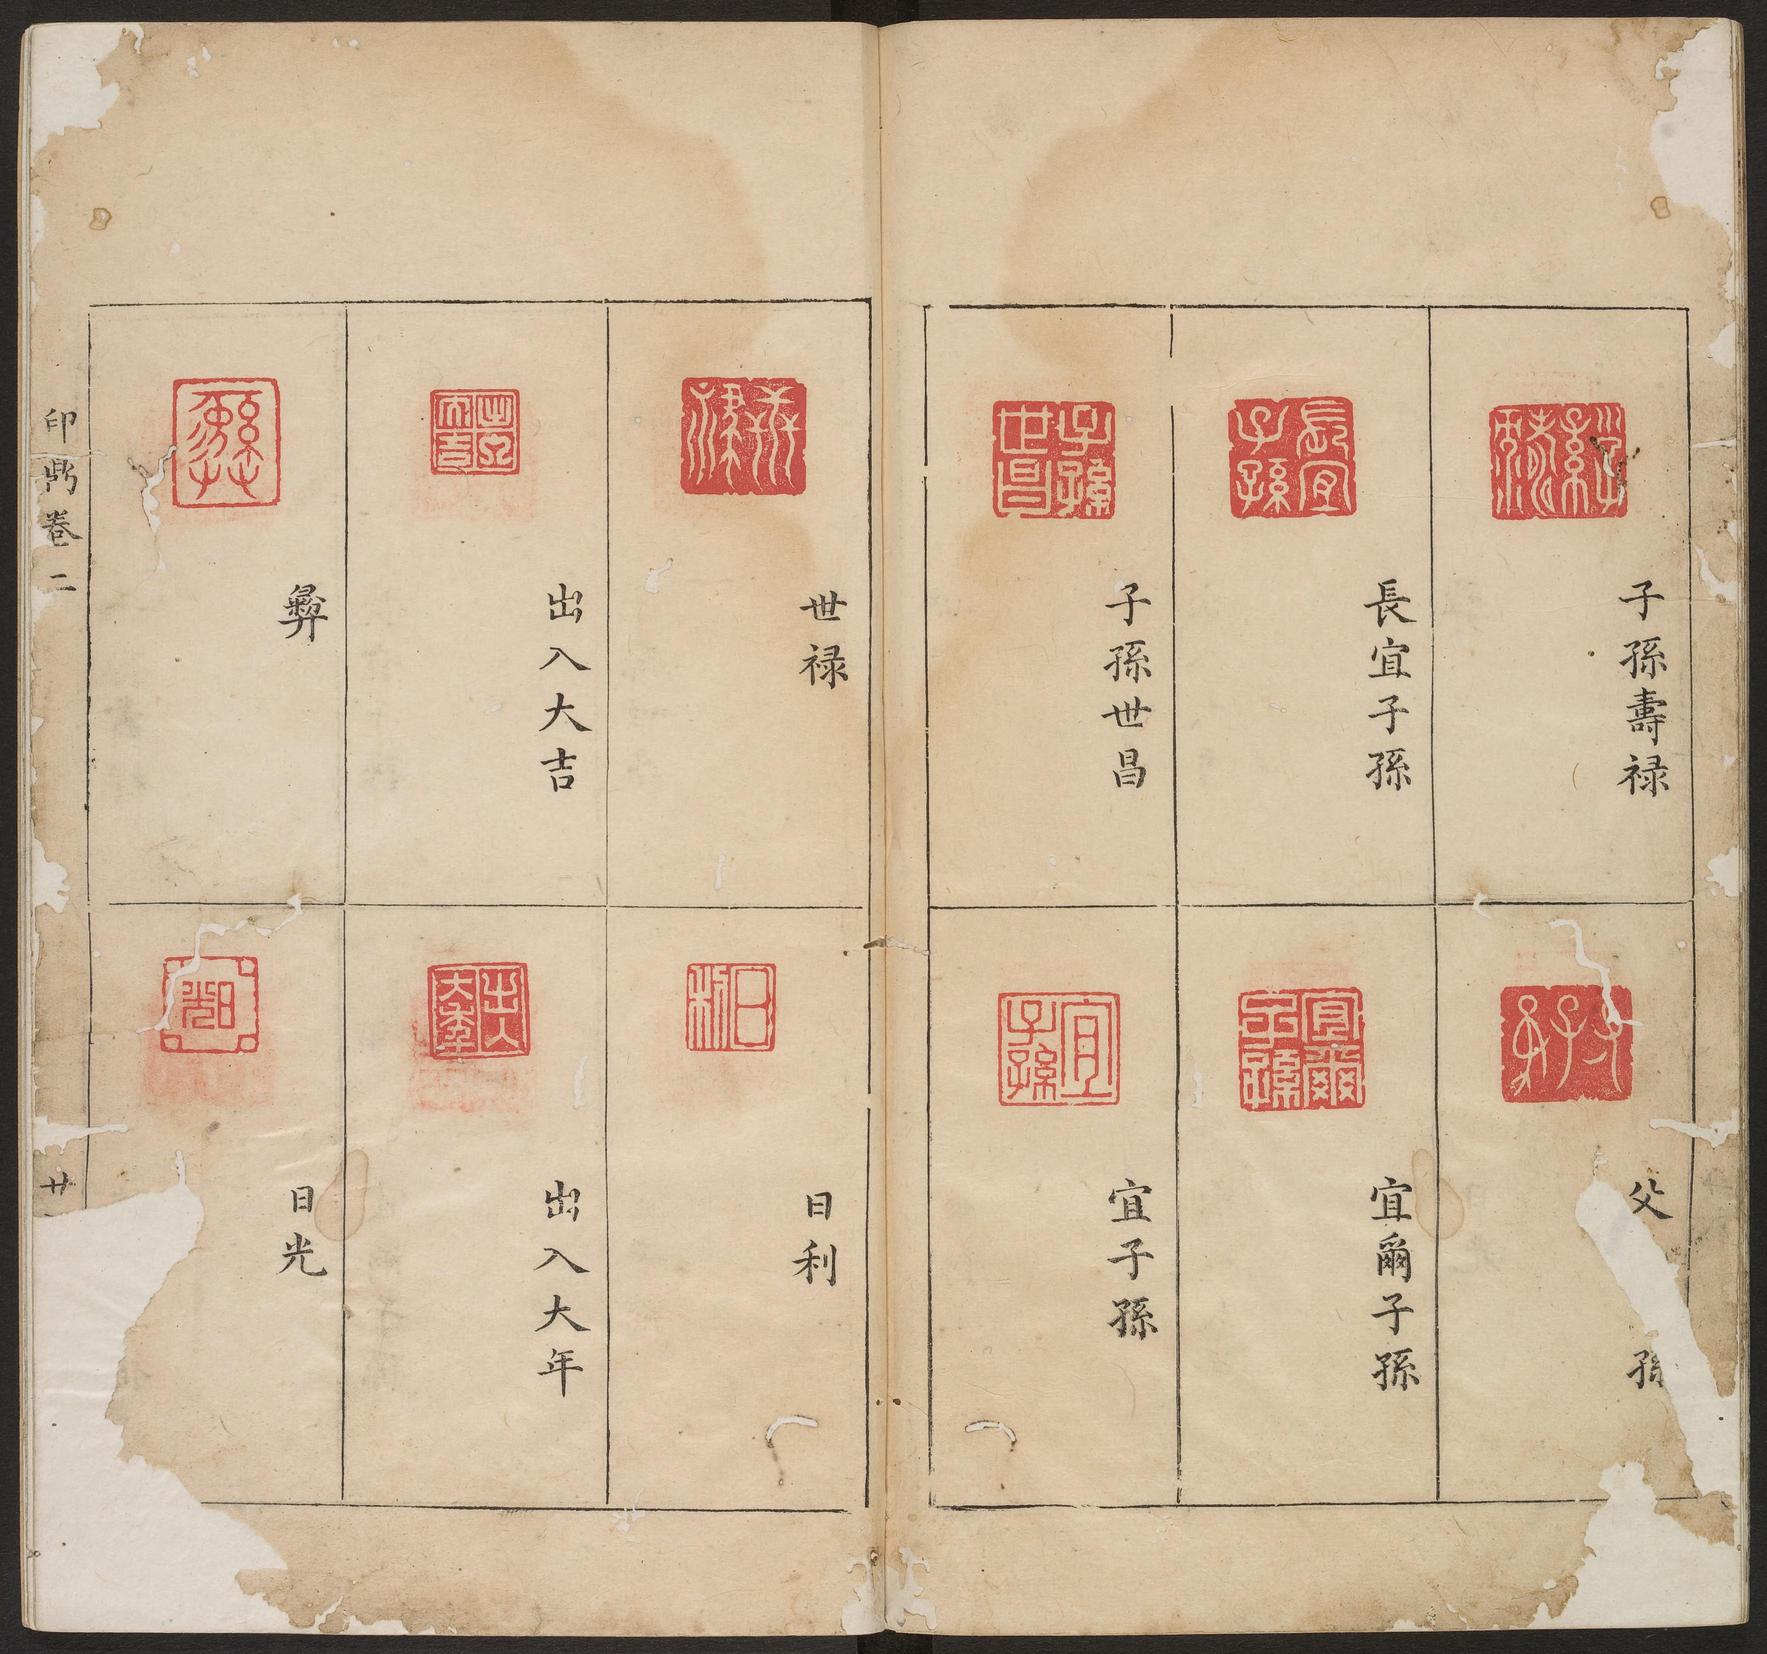 子孫壽禄
長宜子孫
子孫世昌
父
孫
宜爾子孫
宜子孫
世禄
出入大吉
彝
日利
出入大年
日光
印鼎卷二
廿